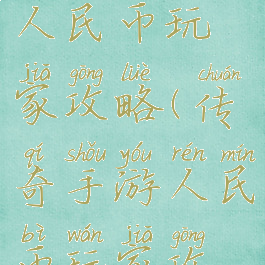 人民币玩
jiā gōng lüè chuán
家攻略(传
qí shǒu yóu rén mín
奇手游人民
bì wán jiā gōng
币玩家攻